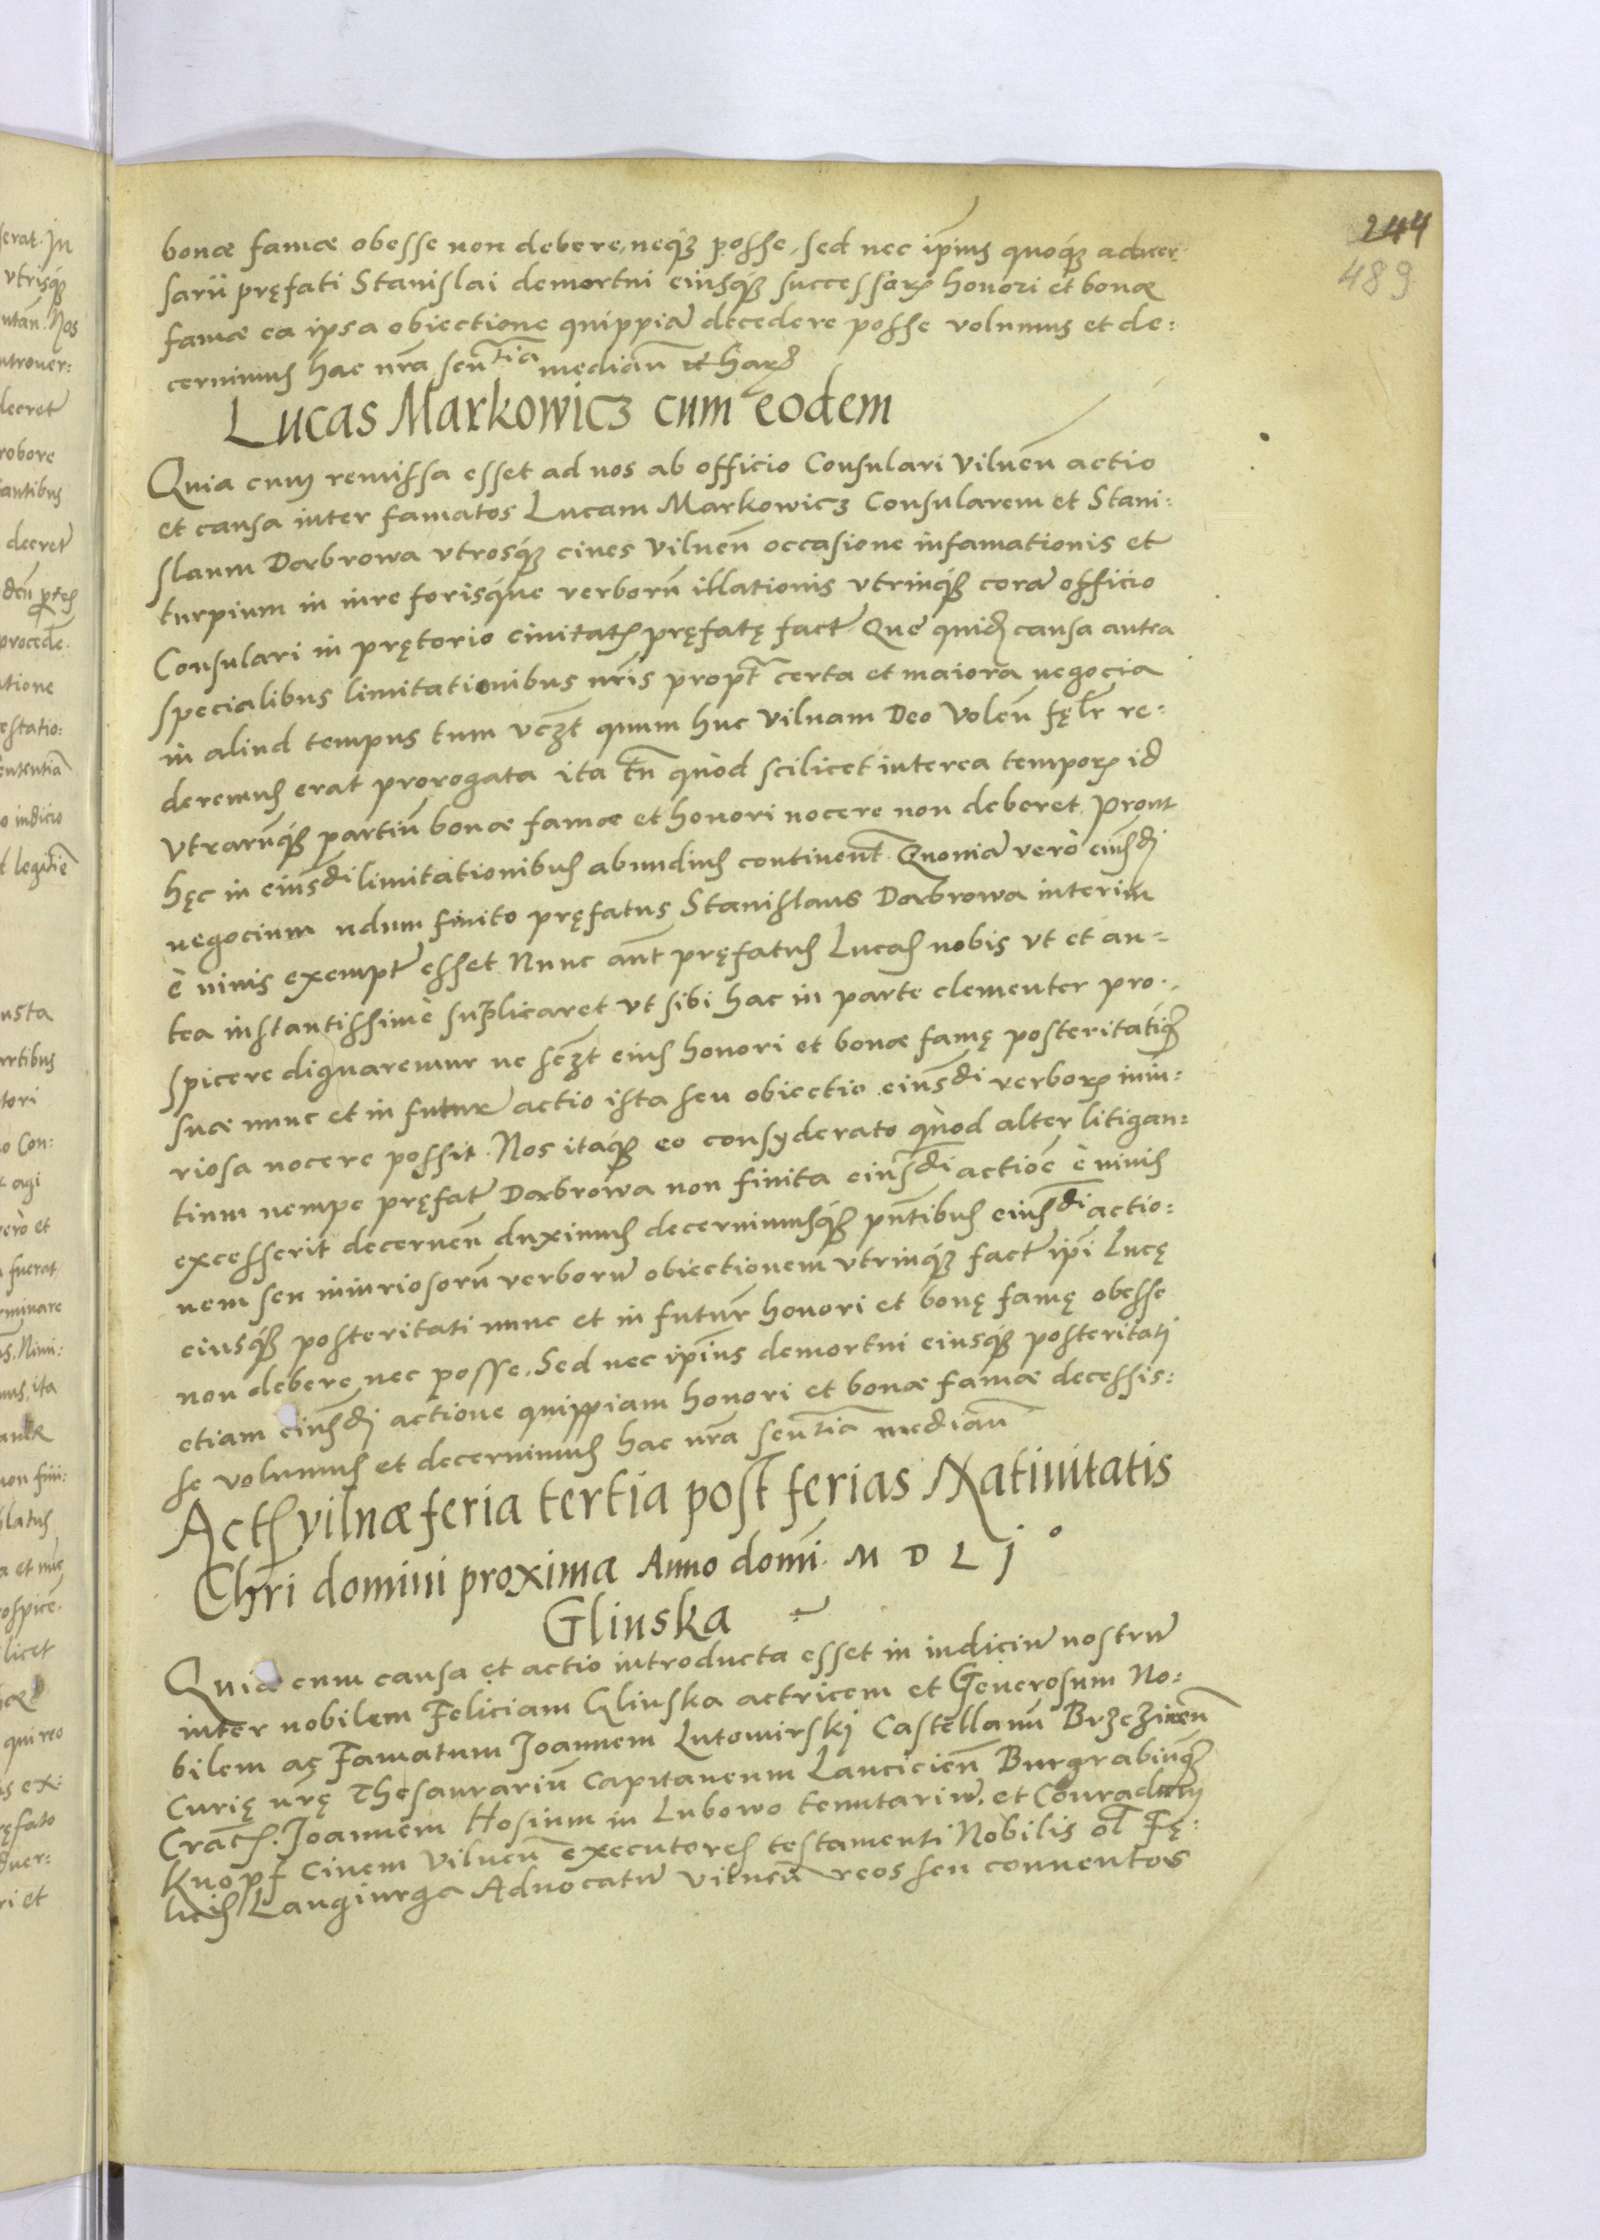 244
489
bonæ famæ obesse non debere, neq3 posse, sed nec ip̃ius quoq3 aduer:
sarii pręfati Stanislai demortui eiusq3 successorꝝ honori et bonæ
famæ ea ipsa obiectione quippiã decedere posse volumus et de:
cernimus hac nr̃a sen̄tia mediañ et harꝝ
Lucas Markowicz cum eodem
Quia cum remissa esset ad nos ab officio Consulari Vilneñ actio
et causa inter famatos Lucam Markowicz Consularem et Stani:
slaum Dąbrowa vtrosq3 ciues Vilneñ occasione infamationis et
turpium in iure forisq́ue verborũ illationis vtrinq3 corã officio
Consulari in prętorio ciuitatꝭ pręfatę fact Que quidꝫ causa antea
specialibus limitationibus nr̃is propt̃ certa et maiora negocia
in aliud tempus tum vcꝫt quum huc Vilnam Deo Voleñ fęlr̃ re:
deremus erat prorogata ita tñ quòd scilicet interea temporꝭ id
Vtrarũq3 partiũ bonæ famæ et honori nocere non deberet, prout
hęc in eiusđi limitationibus abundius continent̃. Quoniã verò eiusđi
negocium ndum finito pręfatus Stanislaus Dąbrowa interim
è viuis exempt esset Nunc aũt pręfatus Lucas nobis vt et an:
tea instantissimè supplicaret vt sibi hac in parte clementer pro:
spicere dignaremur ne scꝫt eius honori et bonæ famę posteritatiq3
suæ nunc et in futurũ actio ista seu obiectio eiusđi verborꝝ iniu:
riosa nocere possit. Nos itaq3 eo consyderato quòd alter litigan:
tium nempe pręfat Dąbrowa non finita eiusđi actioẽ è viuis
excesserit decerneñ duximus decernimusq3 pñtibus eiusđi actio:
nem seu iniuriosorũ verborũ obiectionem vtrinq3 fact ip̃i Lucę
eiusq3 posteritati nunc et in futurũ honori et bonę famę obesse
non debere, nec posse. Sed nec ip̃ius demortui eiusq3 posteritati
etiam eiusđi actione quippiam honori et bonæ famæ decessis:
se volumus et decernimus hac nr̃a sen̄tia mediañ
Actꝭ vilnæ feria tertia post ferias Natiuitatis
Chr̃i domini proxima Anno domĩ. M D L I°
Glinska
Quia cum causa et actio introducta esset in iudiciũ nostrũ
inter nobilem Feliciam Glinska actricem et Generosum No:
bilem ac Famatum Joannem Lutomirskj Castellanũ Brzezineñ
Curię nr̃ę Thesaurariũ Capitaneum Lancicieñ Burgrabiũq3
Cracꝭ. Joannem Hosium in Lubowo tenutariũ, et Conradum
Knopf Ciuem Vilneñ executores testamenti Nobilis ol̃ Fę:
licis Langiurga Aduocatũ vilneñ reos seu conuentos